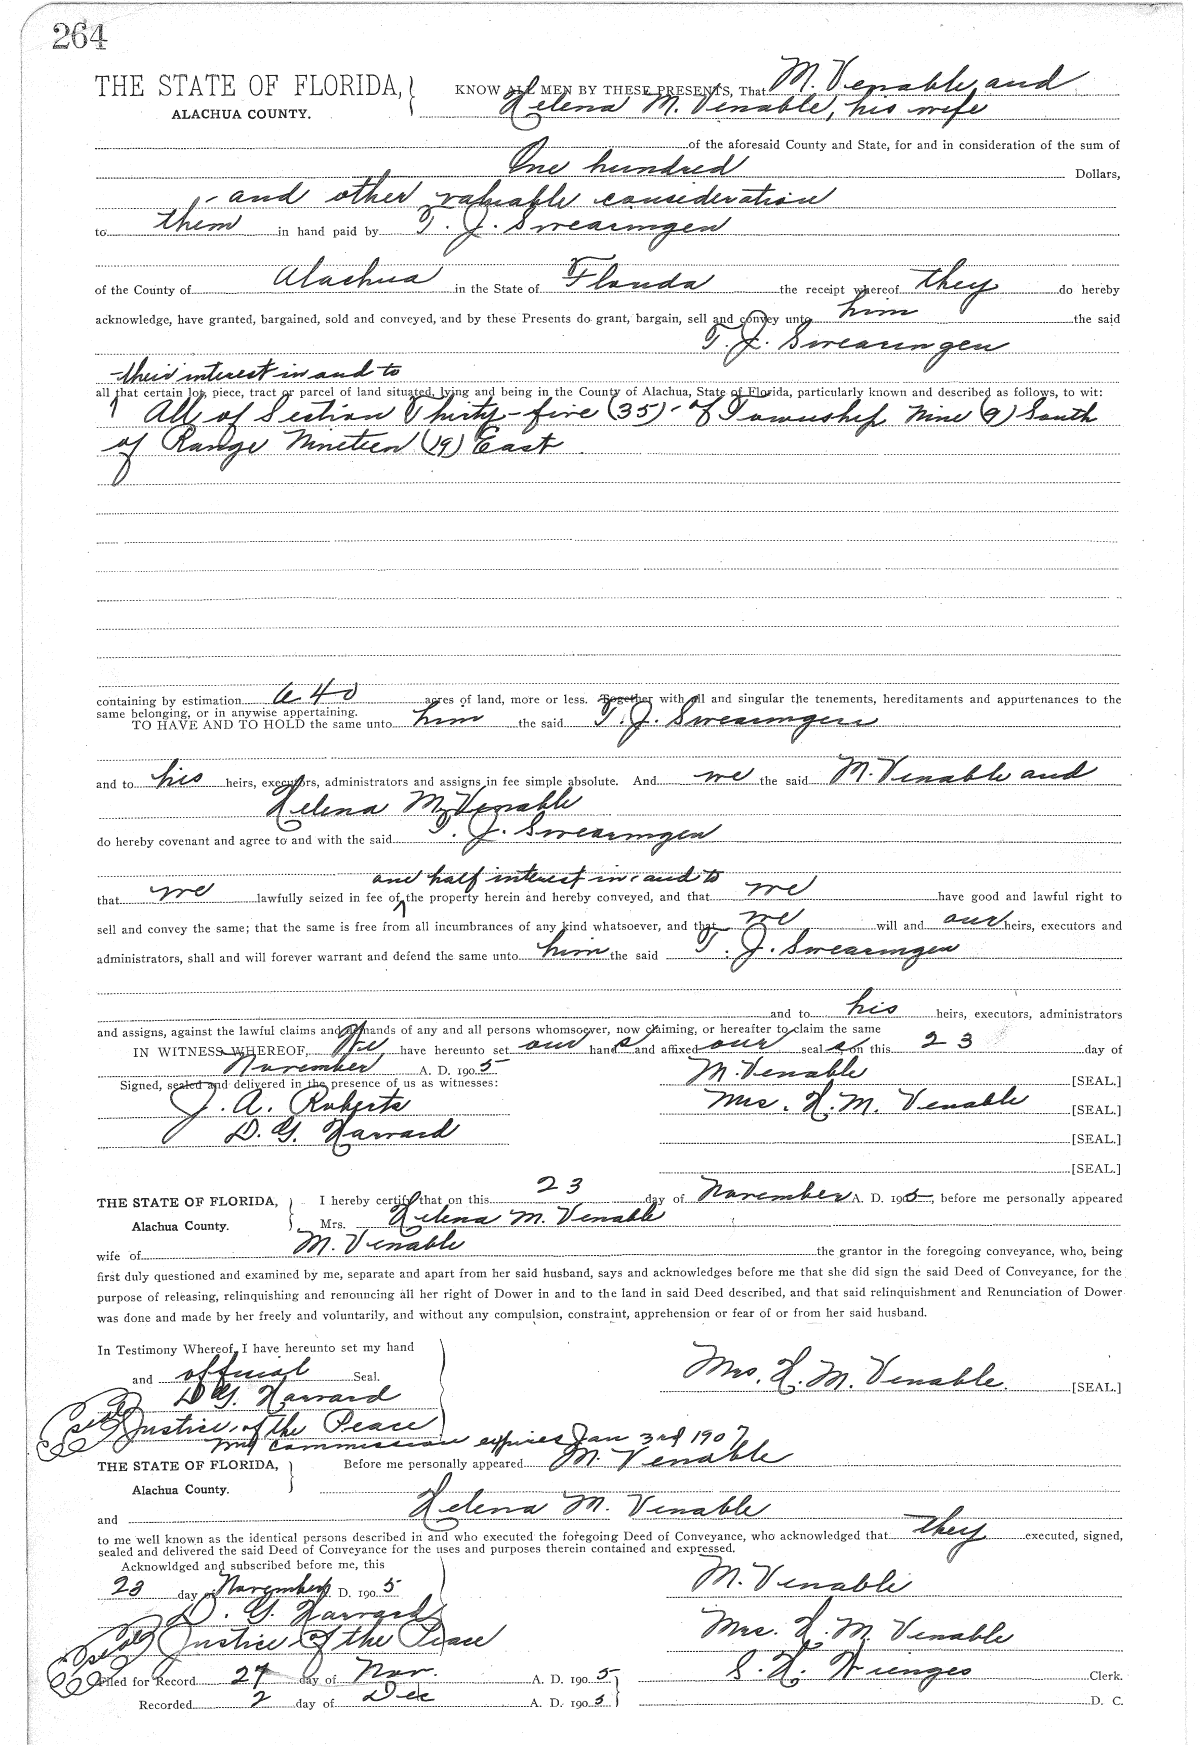 264
THE STATE OF FLORIDA, KNOW ALL MEN BY THESE PRESENTS, That M. Venable and
ALACHUA COUNTY. Helena M. Venable, his wife
of the aforesaid County and State, for and in consideration of the sum of
One hundred Dollars,
- and other valuable consideration
to them in hand paid by T. J. Swearingen
of the County of Alachua in the State of Florida the receipt whereof they do hereby
acknowledge, have granted, bargained, sold and conveyed, and by these Presents do grant, bargain, sell and convey unto him the said
T. J. Swearingen
their interest in and to
all that certain lot, piece, tract or parcel of land situated, lying and being in the County of Alachua, State of Florida, particularly known and described as follows, to wit:
All of Section Thirty-five (35) - of Township Nine (9) South
of Range Nineteen (19) East
containing by estimation 640 acres of land, more or less. Together with all and singular the tenements, hereditaments and appurtenances to the
same belonging, or in anywise appertaining.
TO HAVE AND TO HOLD the same unto him the said T. J. Swearingen
and to his heirs, executors, administrators and assigns in fee simple absolute. And we the said M. Venable and
Helena M. Venable
do hereby covenant and agree to and with the said T. J. Swearingen
and half interest in and to
that we lawfully seized in fee of the property herein and hereby conveyed, and that we have good and lawful right to
sell and convey the same; that the same is free from all incumbrances of any kind whatsoever, and that we will and our heirs, executors and
administrators, shall and will forever warrant and defend the same unto him the said T. J. Swearingen
and to his heirs, executors, administrators
and assigns, against the lawful claims and demands of any and all persons whomsoever, now claiming, or hereafter to claim the same
IN WITNESS WHEREOF, We have hereunto set our hands and affixed our seals on this 23 day of
November A. D. 1905 M. Venable
Signed, sealed and delivered in the presence of us as witnesses: [SEAL.]
J. A. Roberts Mrs. H. M. Venable [SEAL.]
D. G. Harvard [SEAL.]
[SEAL.]
THE STATE OF FLORIDA, I hereby certify that on this 23 day of November A. D. 1905, before me personally appeared
Alachua County. Mrs. Helena M. Venable
wife of M. Venable the grantor in the foregoing conveyance, who, being
first duly questioned and examined by me, separate and apart from her said husband, says and acknowledges before me that she did sign the said Deed of Conveyance, for the
purpose of releasing, relinquishing and renouncing all her right of Dower in and to the land in said Deed described, and that said relinquishment and Renunciation of Dower
was done and made by her freely and voluntarily, and without any compulsion, constraint, apprehension or fear of or from her said husband.
In Testimony Whereof, I have hereunto set my hand
and official Seal. Mrs. H. M. Venable [SEAL.]
D G. Harvard
Seal Justice of the Peace
my commission expires Jan 3rd 1907
THE STATE OF FLORIDA, Before me personally appeared M. Venable
Alachua County.
and Helena M. Venable
to me well known as the identical persons described in and who executed the foregoing Deed of Conveyance, who acknowledged that they executed, signed,
sealed and delivered the said Deed of Conveyance for the uses and purposes therein contained and expressed.
Acknowldged and subscribed before me, this
23 day of November A. D. 1905 M. Venable
D. G. Harvard
Seal Justice of the Peace Mrs. H. M. Venable
Filed for Record 27 day of Nov. A. D. 1905 S. H. Wienges Clerk.
Recorded 2 day of Dec A. D. 1905 D. C.